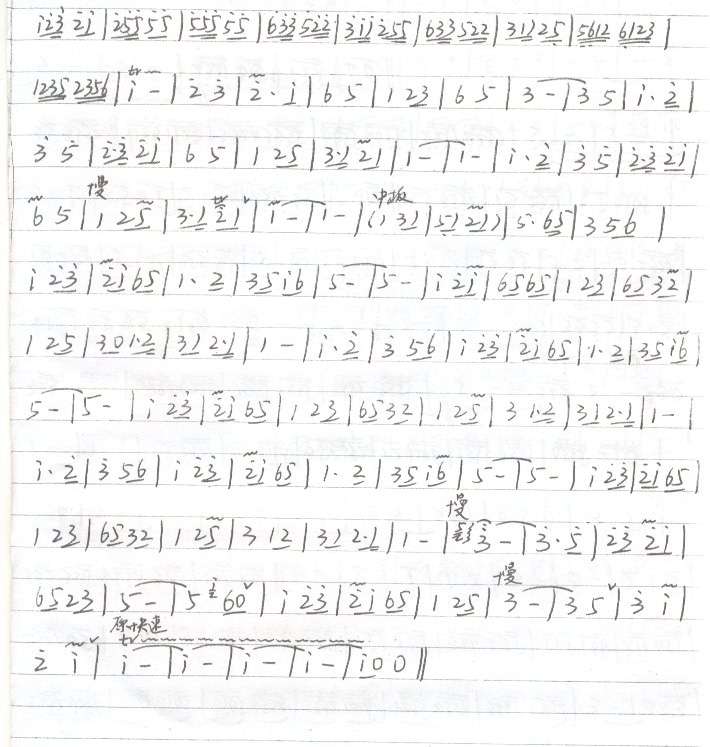 i̇2̇3̇ 2̇i̇ | 2̇5̇5̇ 5̇5̇ | 5̇5̇5̇ 5̇5̇ | 6̇3̇3̇ 5̇2̇2̇ | 3̇i̇i̇ 2̇55 | 633 522 | 311 25 | 5612 6123 |
1235 2356 | i̇ - | 2̇ 3̇ | 2̇· i̇ | 6 5 | 1 23 | 6 5 | 3 - | 3 5 | i̇· 2̇ |
3̇ 5̇ | 2̇·3̇ 2̇i̇ | 6 5 | 1 25 | 3·1 21 | 1 - | 1 - | i̇· 2̇ | 3̇ 5̇ | 2̇·3̇ 2̇i̇ |
慢 中板
6 5 | 1 25 | 3·1 21 | 1 - | 1 - | (1 31 | 51 21) | 5· 65 | 3 56 |
i̇ 2̇3̇ | 2̇i̇ 65 | 1· 2 | 35 i̇6 | 5 - | 5 - | i̇ 2̇i̇ | 65 65 | 1 23 | 65 32 |
1 25 | 30 1·2 | 31 2·1 | 1 - | i̇· 2̇ | 3̇ 56 | i̇ 2̇3̇ | 2̇i̇ 65 | 1· 2 | 35 i̇6 |
5 - | 5 - | i̇ 2̇3̇ | 2̇i̇ 65 | 1 23 | 65 32 | 1 25 | 3 1·2 | 31 2·1 | 1 - |
i̇· 2̇ | 3̇ 56 | i̇ 2̇3̇ | 2̇i̇ 65 | 1· 2 | 35 i̇6 | 5 - | 5 - | i̇ 2̇3̇ | 2̇i̇ 65 |
慢
1 23 | 65 32 | 1 25 | 3 12 | 31 2·1 | 1 - | 3̇ - | 3̇· 5̇ | 2̇3̇ 2̇i̇ |
慢
65 23 | 5 - | 5 60 | i̇ 2̇3̇ | 2̇i̇ 65 | 1 25 | 3 - | 3 5 | 3̇ i̇ |
原快速
2̇ i̇ | i̇ - | i̇ - | i̇ - | i̇ - | i̇ 0 0 ‖